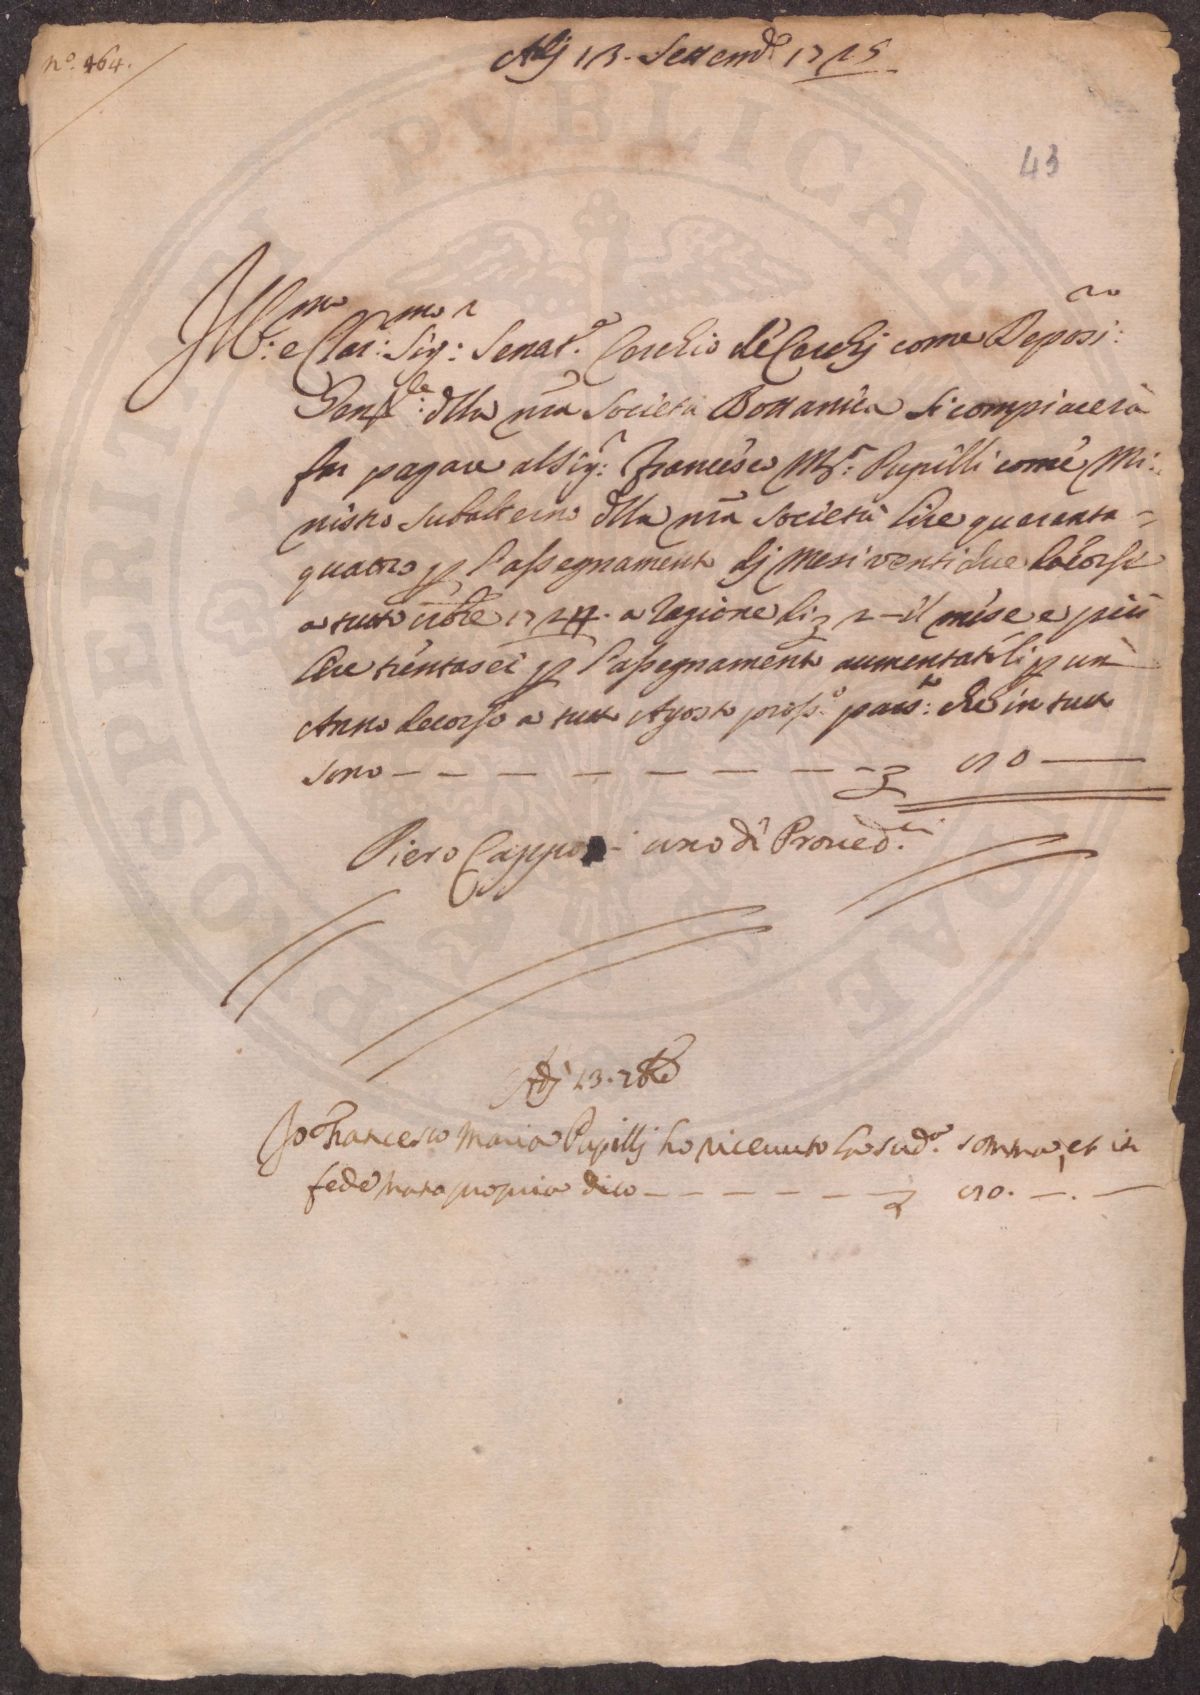 n.° 464.
Adj 13. Settemb.e 1725
43
Ill.mo e Clar.mo Sig.r Senat.e Cerchio de Cerchj come Deposi:rio
Gen.le della nra Società Bottanica si compiacerà
far pagare al Sig.r Francesco M.a Pupilli come Mi:
nistro subalterno della nra Società lire quaranta=
quattro p l'assegnamento dj Mesi ventidue decorsi
a tutto 1724. a ragione di £ 2 - il mese e più
lire trentasei p l'assegnamento aumentatoli p un
Anno decorso a tutto Agosto pross.o pass.to che in tutto
sono — — — — — — — — £ 80 —
Piero Capponi uno de Proved.ri
Adj 13. 7bre
Io Francesco Maria Pupillj ho riceuuto la sud.a somma, et in
fede mano propria dico — — — — — — £ 80. —. —
PVBLICAE